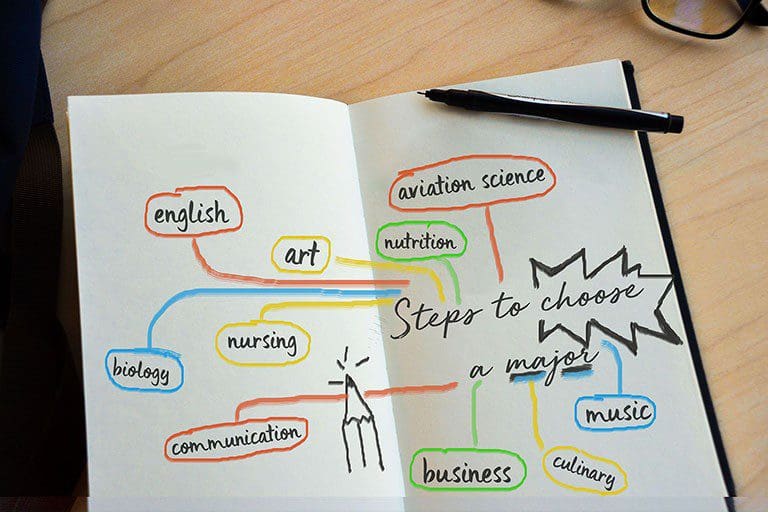 english
art
nursing
biology
communication
aviation science
nutrition
Steps to choose
a major
music
business
culinary